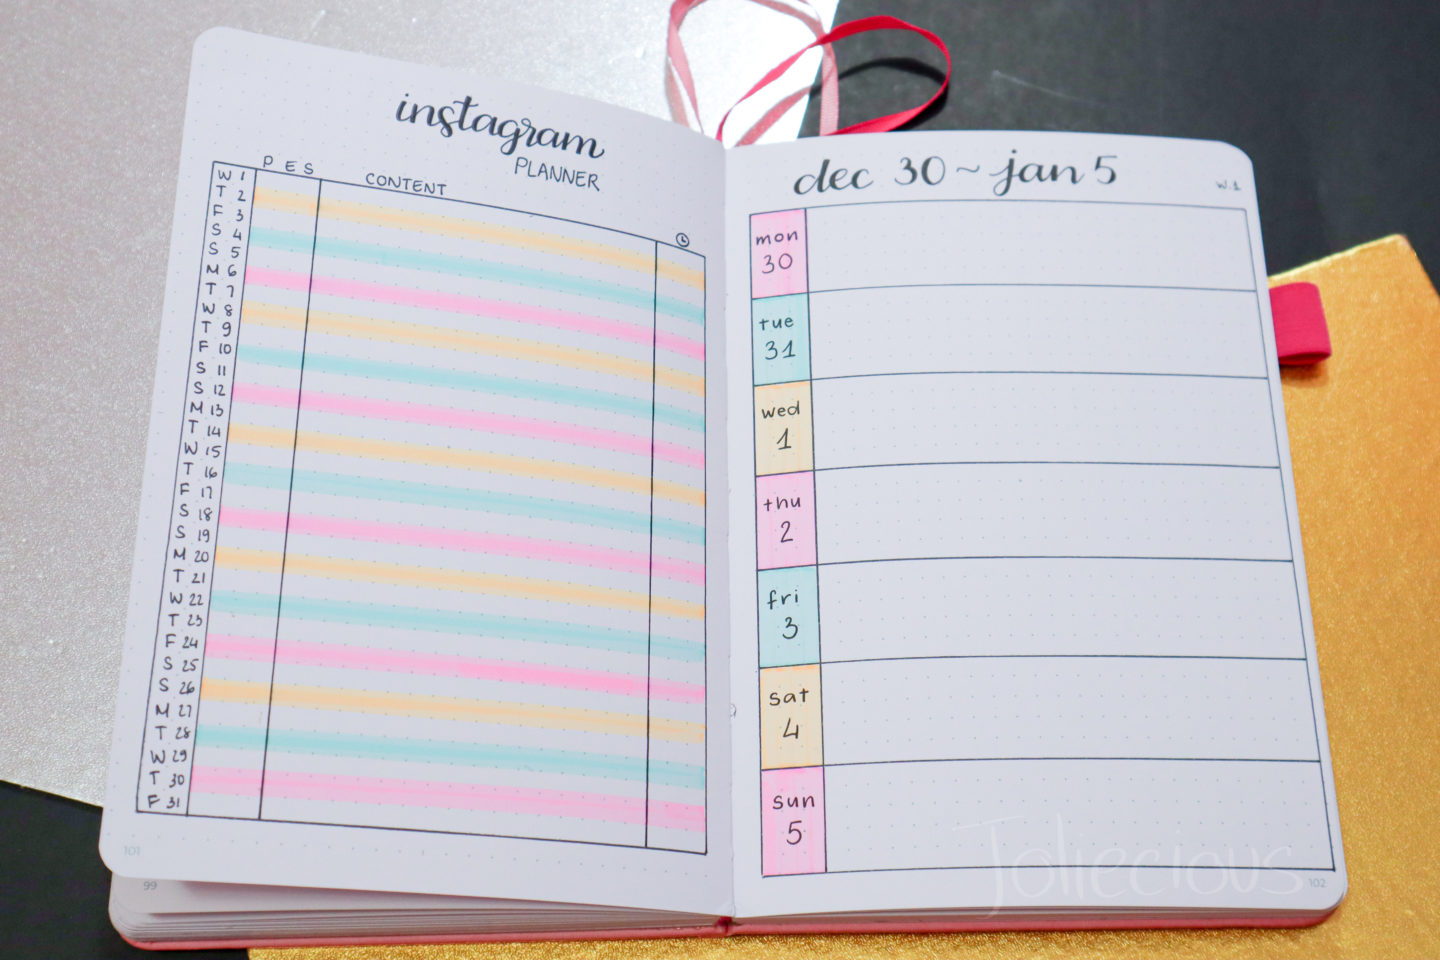 instagram
PLANNER
P E S CONTENT
W 1
T 2
F 3
S 4
S 5
M 6
T 7
W 8
T 9
F 10
S 11
S 12
M 13
T 14
W 15
T 16
F 17
S 18
S 19
M 20
T 21
W 22
T 23
F 24
S 25
S 26
M 27
T 28
W 29
T 30
F 31
101
99
dec 30 ~ jan 5
W.1
mon
30
tue
31
wed
1
thu
2
fri
3
sat
4
sun
5
Joliecious
102